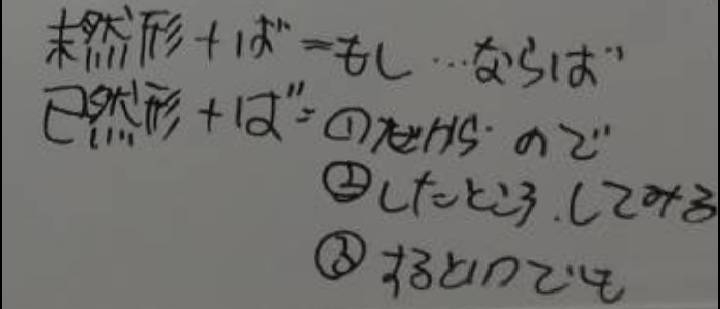 未然形+ば=もし…ならば
已然形+ば=①だから ので
②したところ.してみる
③するといつでも